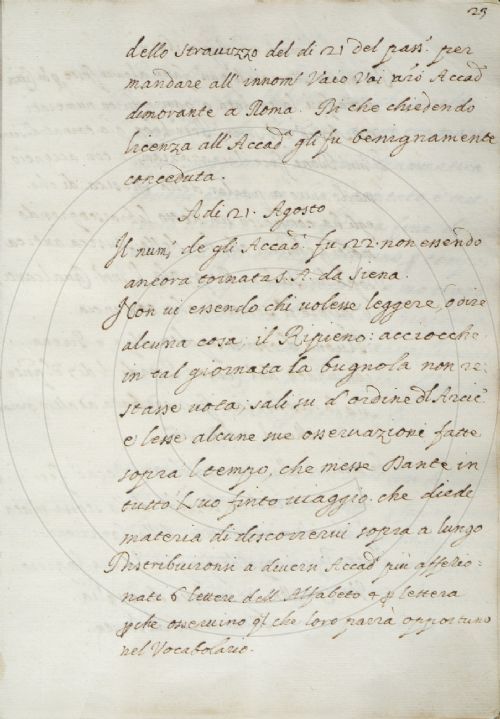 25
dello stravizzo del dì 21 del pass.º per
mandare all' innom.º Vaio Vai n̄r̄o Accad.
dimorante a Roma. Di che chiedendo
licenza all' Accad.ª gli fu benignamente
conceduta.
A dì 21. Agosto
Il num.º de gli Accad. fu 22. non essendo
ancora tornata S. A. da Siena.
Non vi essendo chi volesse leggere, o dire
alcuna cosa; il Ripieno: acciocche
in tal giornata la bugnola non re:
stasse vota; salì su d' ordine dl Arcic.º
e lesse alcune sue osservazioni fatte
sopra 'l tempo, che messe Dante in
tutto 'l suo finto viaggio. che diede
materia di discorrervi sopra a lungo
Distribuironsi a diversi Accad. più affezio:
nati 6 lettere dell' Alfabeto
lettera
che osservino che loro parrà opportuno
nel Vocabolario.